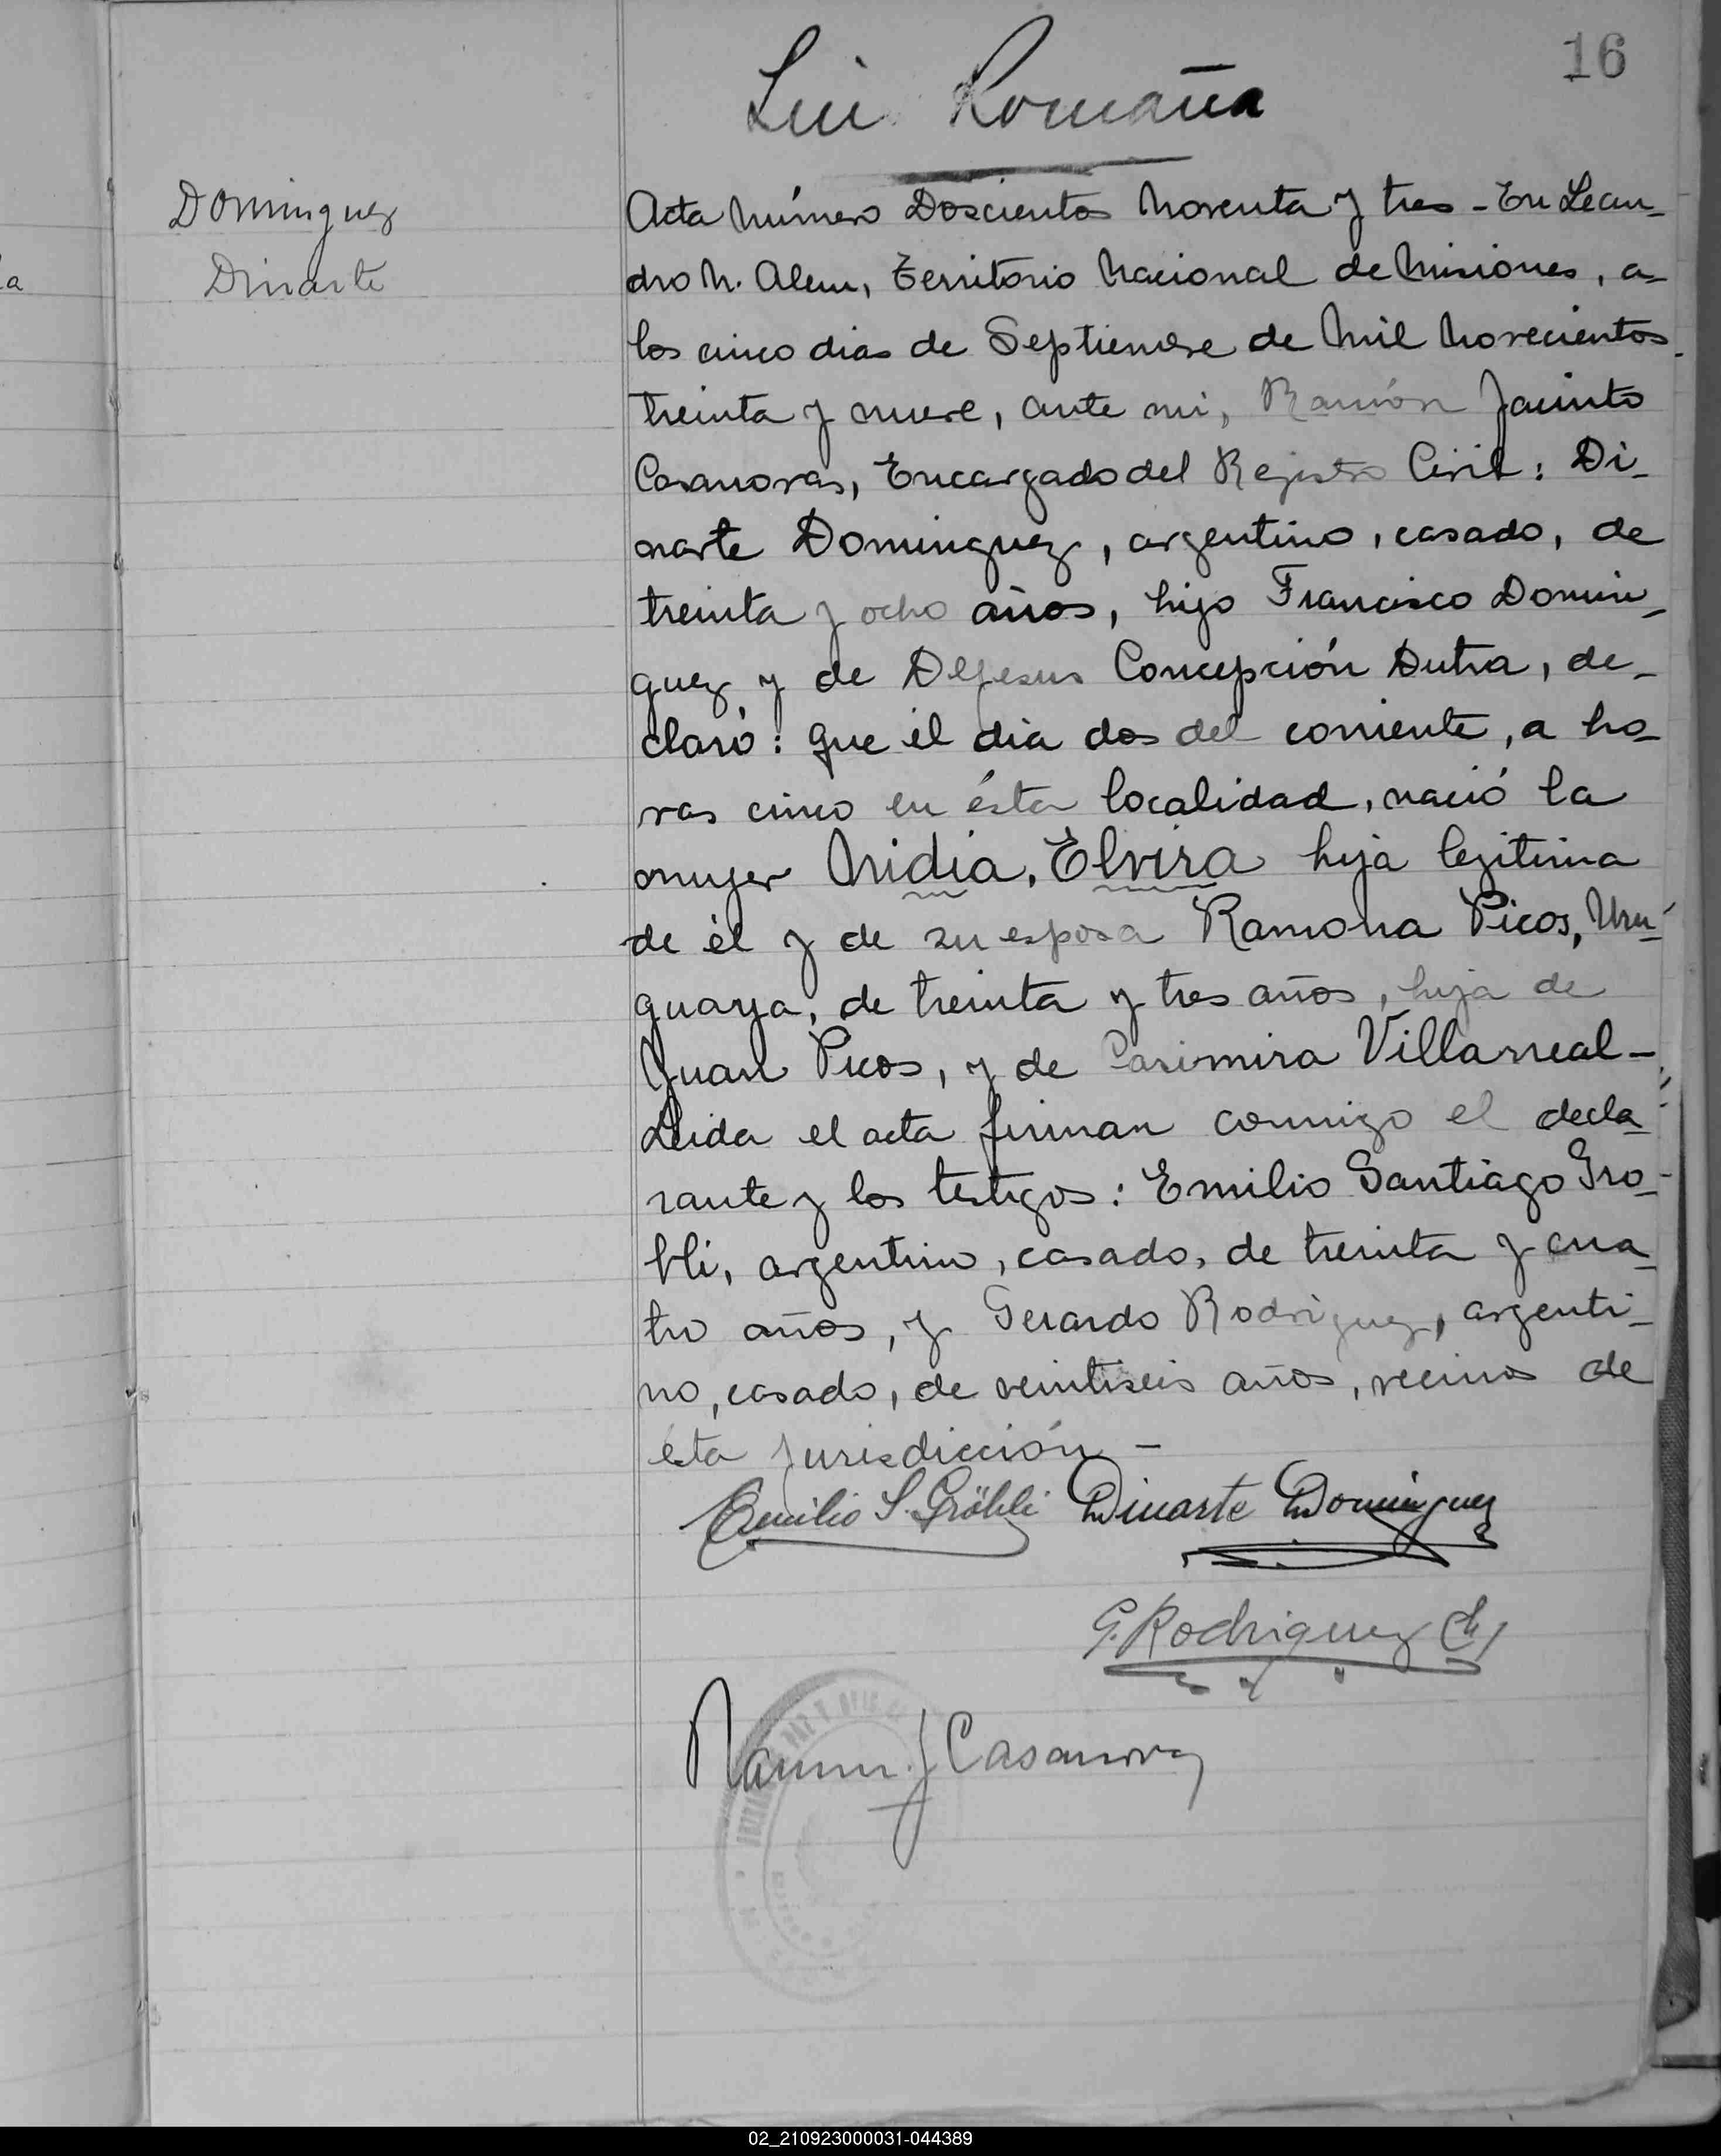 16
Lui Romaña
Dominguez
Dinarte
a
Acta Número Doscientos Noventa y tres - En Lean-
dro N. Alem, Territorio Nacional de Misiones, a-
los cinco dias de Septiembre de Mil Novecientos
treinta y nueve, ante mi, Ramón Jacinto
Casanovas, Encargado del Registro Civil: Di-
narte Dominguez, argentino, casado, de
treinta y ocho años, hijo Francisco Domin-
guez y de Dejesus Concepción Dutra, de-
claró: que el día dos del corriente, a ho-
ras cinco en ésta localidad, nació la
mujer Nidia, Elvira hija legitima
de él y de su esposa Ramona Picos, Uru-
guaya, de treinta y tres años, hija de
Juan Picos, y de Casimira Villarreal -
Leida el acta firman conmigo el decla-
rante y los testigos: Emilio Santiago Gro-
bli, argentino, casado, de treinta y cua-
tro años, y Gerardo Rodriguez, argenti-
no, casado, de veintiseis años, vecinos de
ésta jurisdicción -
Emilio S. Gröbli Dinarte Dominguez
G. Rodriguez (h)
Ramon J Casanovas
02_210923000031-044389